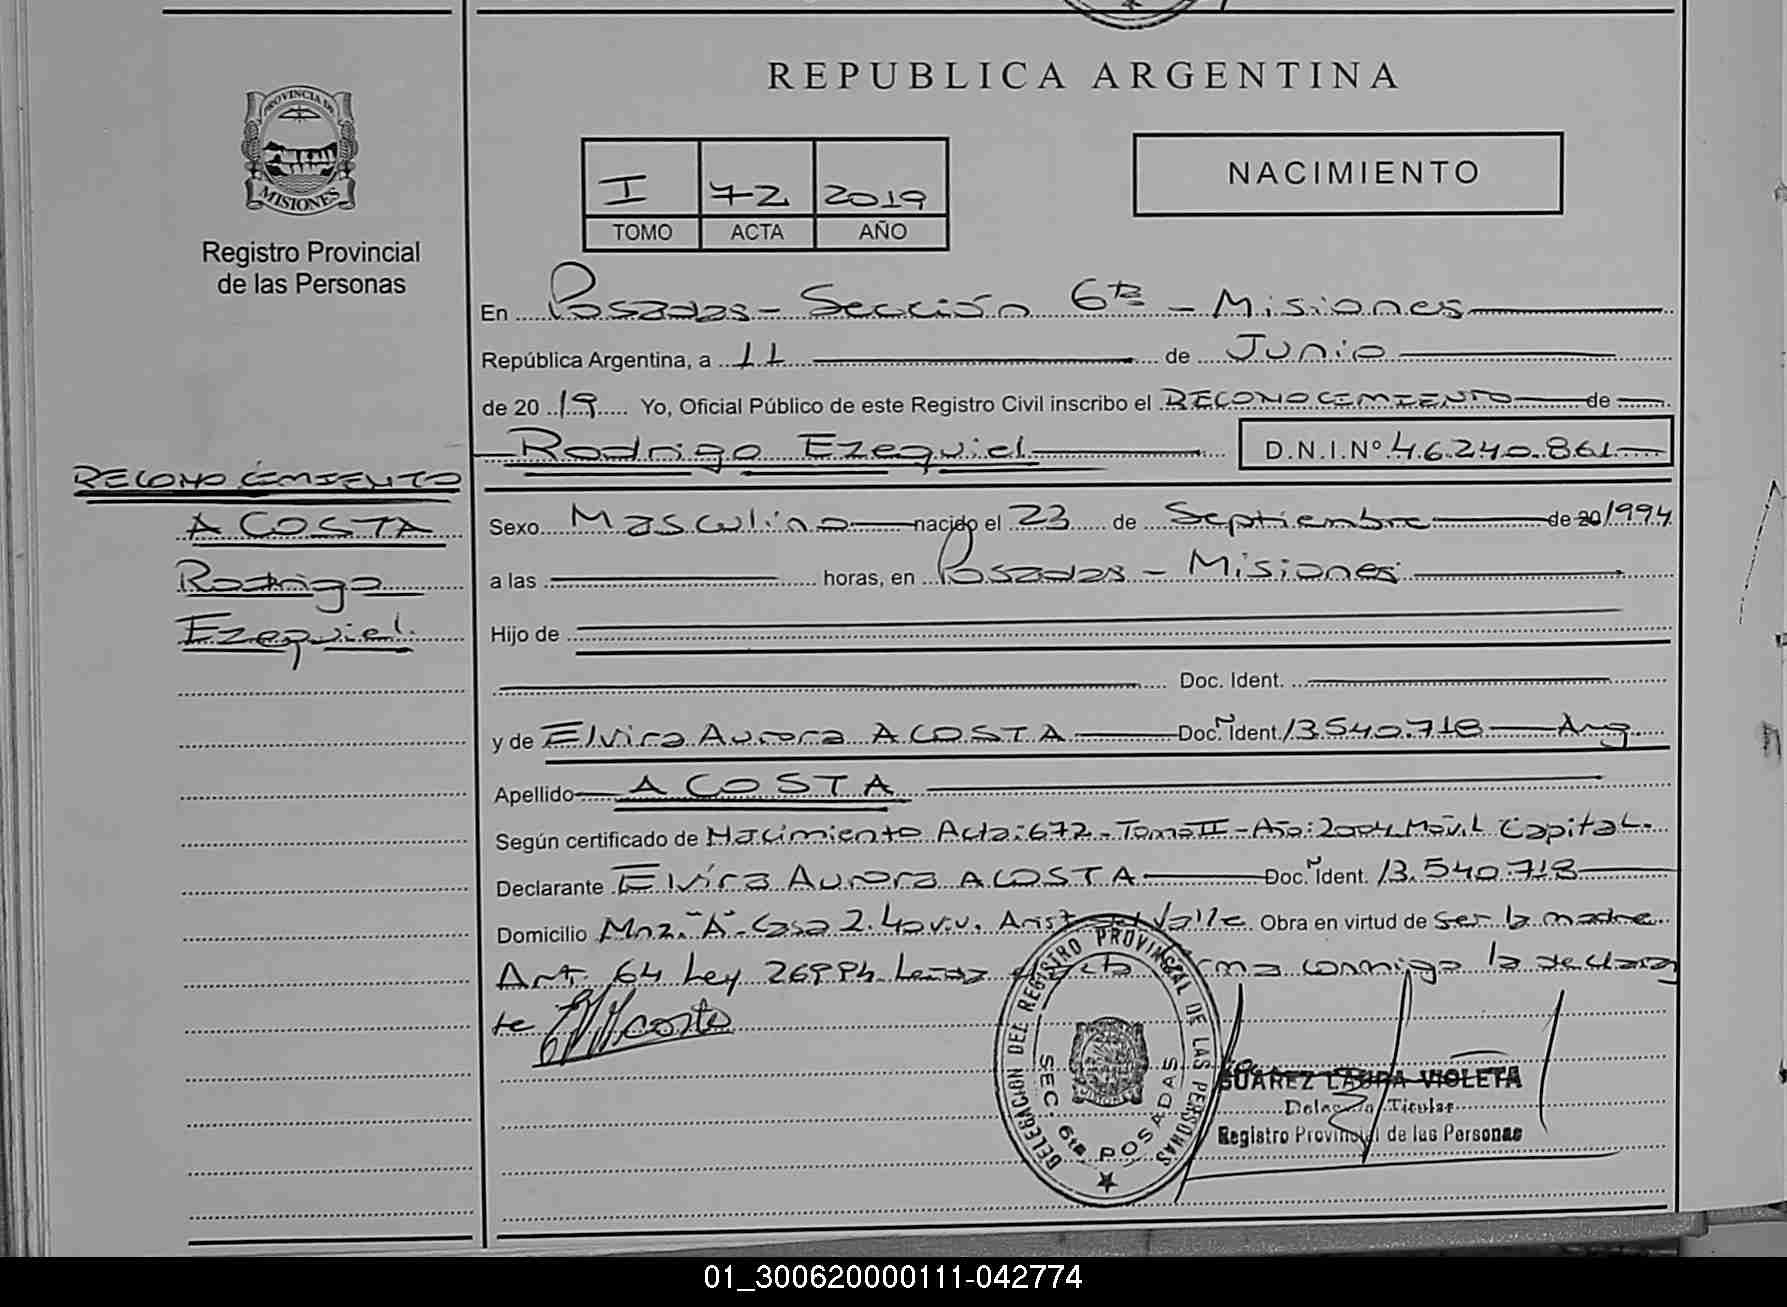 REPUBLICA ARGENTINA
PROVINCIA DE
MISIONES
Registro Provincial
de las Personas
I 72 2019
TOMO ACTA AÑO
NACIMIENTO
En Posadas - Sección 6ta - Misiones
República Argentina, a 11 de Junio
de 2019 Yo, Oficial Público de este Registro Civil inscribo el RECONOCIMIENTO de
Rodrigo Ezequiel D.N.I.Nº 46.240.861
RECONOCIMIENTO
ACOSTA
Rodrigo
Ezequiel.
Sexo Masculino nacido el 23 de Septiembre de 20 1994
a las horas, en Posadas - Misiones
Hijo de
Doc. Ident.
y de Elvira Aurora ACOSTA Doc. Ident. 13.540.718 Arg.
Apellido ACOSTA
Según certificado de Nacimiento Acta: 672 - Tomo II - Año: 2004 Móvil Capital.
Declarante Elvira Aurora ACOSTA Doc. Ident. 13.540.718
Domicilio Mnz. "A" Casa 2. 40 v.v. Arist. del Valle Obra en virtud de ser la madre
Art. 64 Ley 26994. Leída el acta firma conmigo la declaran
te EAcosta
DELEGACION DEL REGISTRO PROVINCIAL DE LAS PERSONAS
SEC. 6ta POSADAS
SUAREZ LAURA VIOLETA
Delegada Titular
Registro Provincial de las Personas
01_300620000111-042774